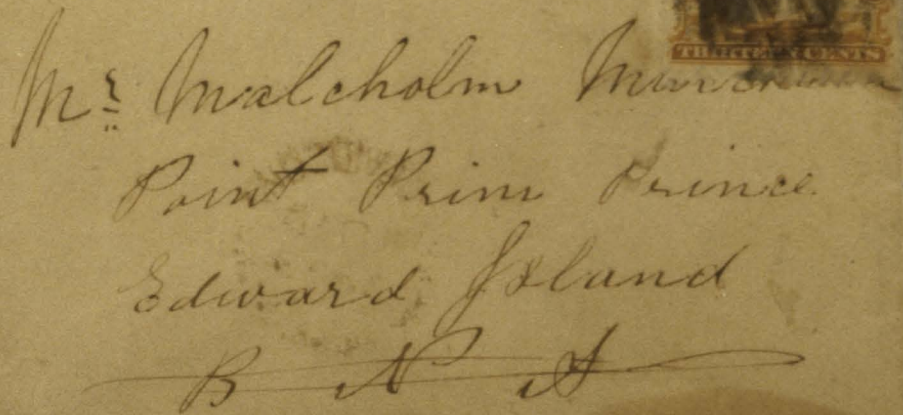 THIRTEEN CENTS
Mr. Malcholm
Point Prim Prince
Edward Island
B N A